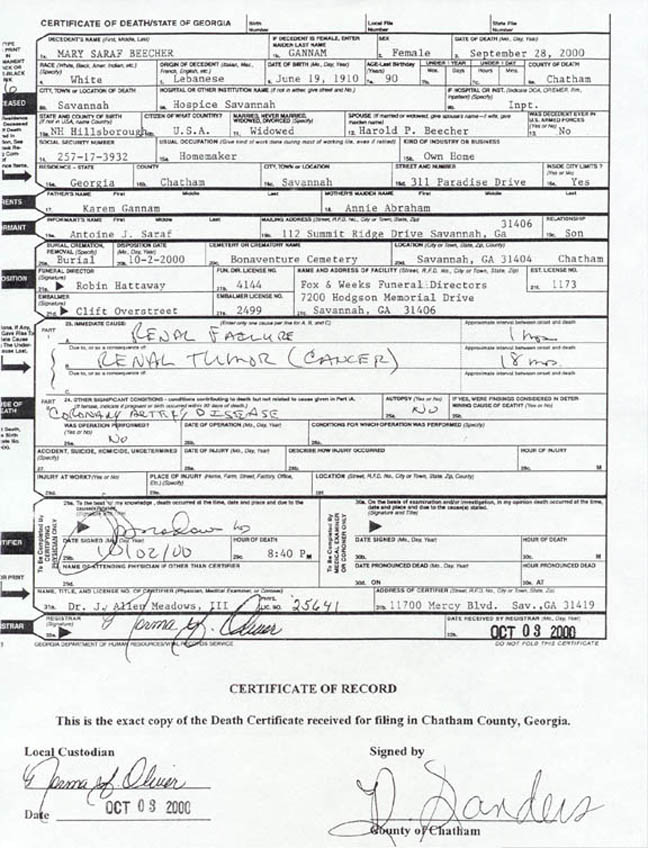 CERTIFICATE OF DEATH/STATE OF GEORGIA Birth Number Local File Number State File Number
DECEDENT'S NAME (First, Middle, Last) IF DECEDENT IS FEMALE, ENTER MAIDEN LAST NAME SEX DATE OF DEATH (Mo., Day, Year)
1. MARY SARAF BEECHER 1a. GANNAM 2. Female 3. September 28, 2000
RACE (White, Black, Amer. Indian, etc.) (Specify) ORIGIN OF DECEDENT (Italian, Mex., French, English, etc.) DATE OF BIRTH (Mo., Day, Year) AGE-Last Birthday (Years) UNDER 1 YEAR Mos. Days UNDER 1 DAY Hours Mins. COUNTY OF DEATH
White Lebanese June 19, 1910 90 Chatham
CITY, TOWN or LOCATION OF DEATH HOSPITAL OR OTHER INSTITUTION NAME (If not in either, give street and No.) IF HOSPITAL OR INST. (Indicate DOA, OP/EMER. Rm., Inpatient) (Specify)
Savannah Hospice Savannah Inpt.
STATE AND COUNTY OF BIRTH (If not in USA, name Country) CITIZEN OF WHAT COUNTRY? MARRIED, NEVER MARRIED, WIDOWED, DIVORCED (Specify) SPOUSE (If married or widowed, give spouse's name—if wife, give maiden name) WAS DECEDENT EVER IN U.S. ARMED FORCES (Yes or No)
NH Hillsborough U.S.A. Widowed Harold P. Beecher No
SOCIAL SECURITY NUMBER USUAL OCCUPATION (Give kind of work done during most of working life, even if retired) KIND OF INDUSTRY OR BUSINESS
257-17-3932 Homemaker Own Home
RESIDENCE - STATE COUNTY CITY, TOWN or LOCATION STREET AND NUMBER INSIDE CITY LIMITS? (Yes or No)
Georgia Chatham Savannah 311 Paradise Drive Yes
FATHER'S NAME First Middle Last MOTHER'S MAIDEN NAME First Middle Last
17. Karem Gannam 18. Annie Abraham
INFORMANT'S NAME First Middle Last MAILING ADDRESS (Street, R.F.D. No., City or Town, State, Zip) 31406 RELATIONSHIP
Antoine J. Saraf 112 Summit Ridge Drive Savannah, GA Son
BURIAL, CREMATION, REMOVAL (Specify) DISPOSITION DATE (Mo., Day, Year) CEMETERY OR CREMATORY NAME LOCATION (City or Town, State, Zip, County)
Burial 10-2-2000 Bonaventure Cemetery Savannah, GA 31404 Chatham
FUNERAL DIRECTOR (Signature) FUN. DIR. LICENSE NO. NAME AND ADDRESS OF FACILITY (Street, R.F.D. No., City or Town, State, Zip) EST. LICENSE NO.
Robin Hattaway 4144 Fox & Weeks Funeral Directors 1173
EMBALMER (Signature) EMBALMER LICENSE NO. 7200 Hodgson Memorial Drive
Clift Overstreet 2499 Savannah, GA 31406
23. IMMEDIATE CAUSE: (Enter only one cause per line for A, B, and C) Approximate interval between onset and death
PART I A. RENAL FAILURE 1 mo
Due to, or as a consequence of: Approximate interval between onset and death
B. RENAL TUMOR (CANCER) 18 mos
Due to, or as a consequence of: Approximate interval between onset and death
C.
PART II 24. OTHER SIGNIFICANT CONDITIONS - conditions contributing to death but not related to cause given in Part IA. AUTOPSY (Yes or No) IF YES, WERE FINDINGS CONSIDERED IN DETERMINING CAUSE OF DEATH? (Yes or No)
(If female, indicate if pregnant or birth occurred within 90 days of death.)
CORONARY ARTERY DISEASE NO
WAS OPERATION PERFORMED? (Yes or No) DATE OF OPERATION (Mo., Day, Year) CONDITIONS FOR WHICH OPERATION WAS PERFORMED (Specify)
No
ACCIDENT, SUICIDE, HOMICIDE, UNDETERMINED (Specify) DATE OF INJURY (Mo., Day, Year) DESCRIBE HOW INJURY OCCURRED HOUR OF INJURY
M
INJURY AT WORK? (Yes or No) PLACE OF INJURY (Home, Farm, Street, Factory, Office, Etc.) (Specify) LOCATION (Street, R.F.D. No., City or Town, State, Zip, County)
To be Completed By CERTIFYING PHYSICIAN ONLY
29a. To the best of my knowledge, death occurred at the time, date and place and due to the cause(s) stated.
(Signature and Title)
DATE SIGNED (Mo., Day, Year) HOUR OF DEATH
10/02/00 8:40 P M
NAME OF ATTENDING PHYSICIAN IF OTHER THAN CERTIFIER
To be Completed By MEDICAL EXAMINER OR CORONER ONLY
30a. On the basis of examination and/or investigation, in my opinion death occurred at the time, date and place and due to the cause(s) stated.
(Signature and Title)
DATE SIGNED (Mo., Day, Year) HOUR OF DEATH
M
DATE PRONOUNCED DEAD (Mo., Day, Year) HOUR PRONOUNCED DEAD
30d. ON 30e. AT
NAME, TITLE, AND LICENSE NO. OF CERTIFIER (Physician, Medical Examiner, or Coroner) ADDRESS OF CERTIFIER (Street, R.F.D. No., City or Town, State, Zip)
31a. Dr. J. Allen Meadows, III LIC. NO. 25641 11700 Mercy Blvd. Sav.,GA 31419
REGISTRAR (Signature) DATE RECEIVED BY REGISTRAR (Mo., Day, Year)
Norma J. Oliver OCT 03 2000
GEORGIA DEPARTMENT OF HUMAN RESOURCES/VITAL RECORDS SERVICE DO NOT FOLD THIS CERTIFICATE
CERTIFICATE OF RECORD
This is the exact copy of the Death Certificate received for filing in Chatham County, Georgia.
Local Custodian Signed by
Norma J. Oliver D. Sanders
Date OCT 03 2000 County of Chatham